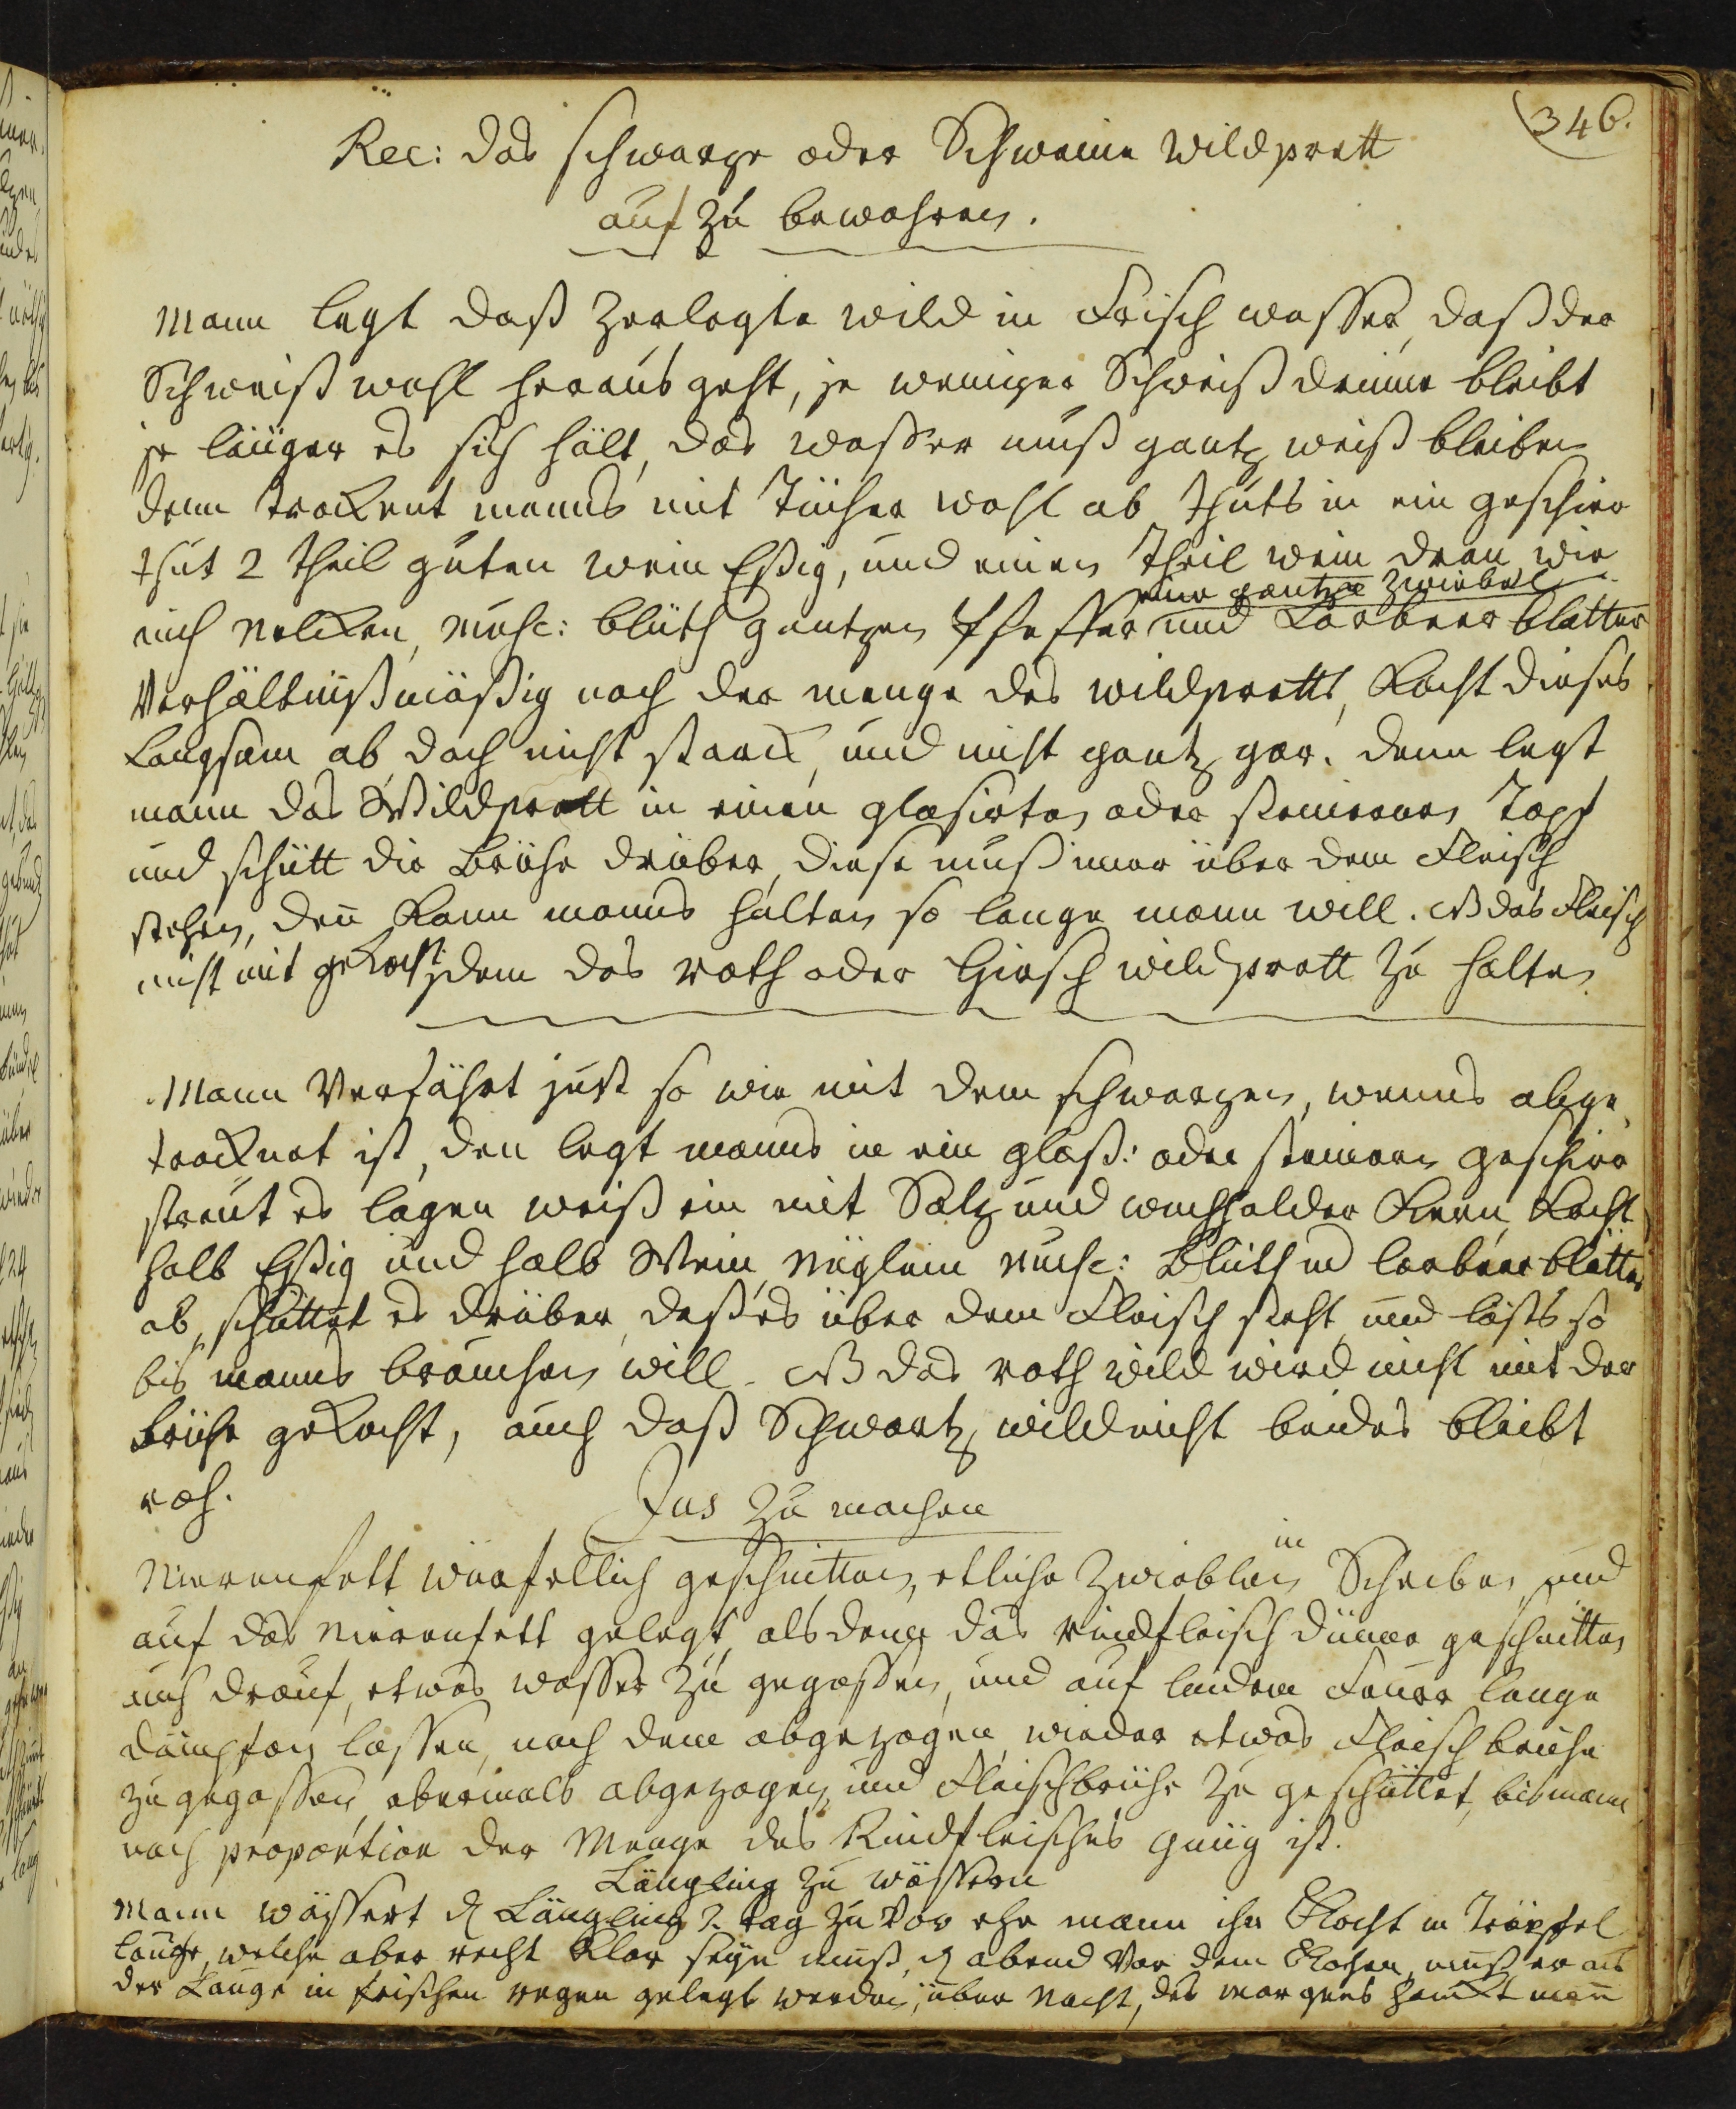 346.
Rec: das schwarze oder Schweine Wildprett
auf zu bewahren.
Mann legt daß Zerlegte wild in Frisch wasser, daß der
Schweiß wohl heraus geht, je weniger Schweiß drinne bleibt
je länger es sich hält, das wasser muß gantz weiß bleiben
denn trockent manns mit Tücher wohl ab thuts in ein geschirr
thut 2 theil guten wein Eßig, und einen Theil wein dran, wie
eine gantze Zwiebel
auch Nelcken, Musc: blüth gantzen Pfeffer und Lorbeer blätter
Verhältnißmäßig nach der menge des wildpretts, kocht dieses
Langsam ab doch nicht starck, und nicht gantz gar. denn legt
mann das Wildprett in einen glasirten oder steinernen Topf
und schütt die Brühe drüber, diese muß imer über dem Fleisch
stehen, deñ kann manns halten so lange mann will. NB das Fleisch
nicht mit gekocht dem das roth oder Hirsch wildprett zu halten
Mann Verfährt just so wie mit dem schwarzen, wenns abge
trocknet ist, den legt manns in ein glaß: oder steinern geschirr
streut es lagen weiß ein mit Saltz und wachholder Kern, kocht
halb Eßig und halb Wein, Näglein Musc: Blüth und lorbeer blätter
ab, schüttet es drüber, daß es über dem Fleisch steht, und lästs so
bis manns brauchen will. NB das roth wild wird nicht mit der
brühe gekocht, auch daß Schwartz wild nicht beides bleibt
roh.
Jus zu machen
Nierenfett würfellich geschnitten, etliche Zwieblen in Scheiben, und
auf das Nierenfett gelegt, als denn das rindfleisch dünne geschnitten
auch drauf, etwas wasser zu gegossen, und auf lindem Feuer lange
dämpfen lassen, nach dem abgezogen, wieder etwas Fleisch brühe
zu gegossen, abermals abgezogen, und Fleischbrühe zu geschüttet, bis mann
nach proportion der Menge des Rindfleisches gnüg ist.
Längling zu wässern
Mann wässert d Längling 2. tag zu vor ehe mann ihn Kocht in Tröpfel
lauge, welche aber recht klar seyn muß, d abend Vor dem Kochen, muß er aus
der Lauge in frischen regen gelegt werden, über Nacht, des morgens hanckt mañ